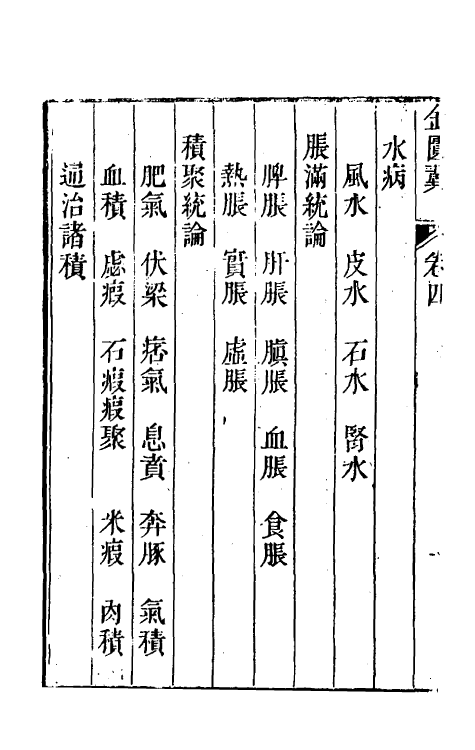 金匱翼　卷四
水病
風水　皮水　石水　腎水
脹滿統論
脾脹　肝脹　䐜脹　血脹　食脹
熱脹　實脹　虛脹
積聚統論
肥氣　伏梁　痞氣　息賁　奔豚　氣積
血積　虙瘕　石瘕瘕聚　米瘕　肉積
通治諸積